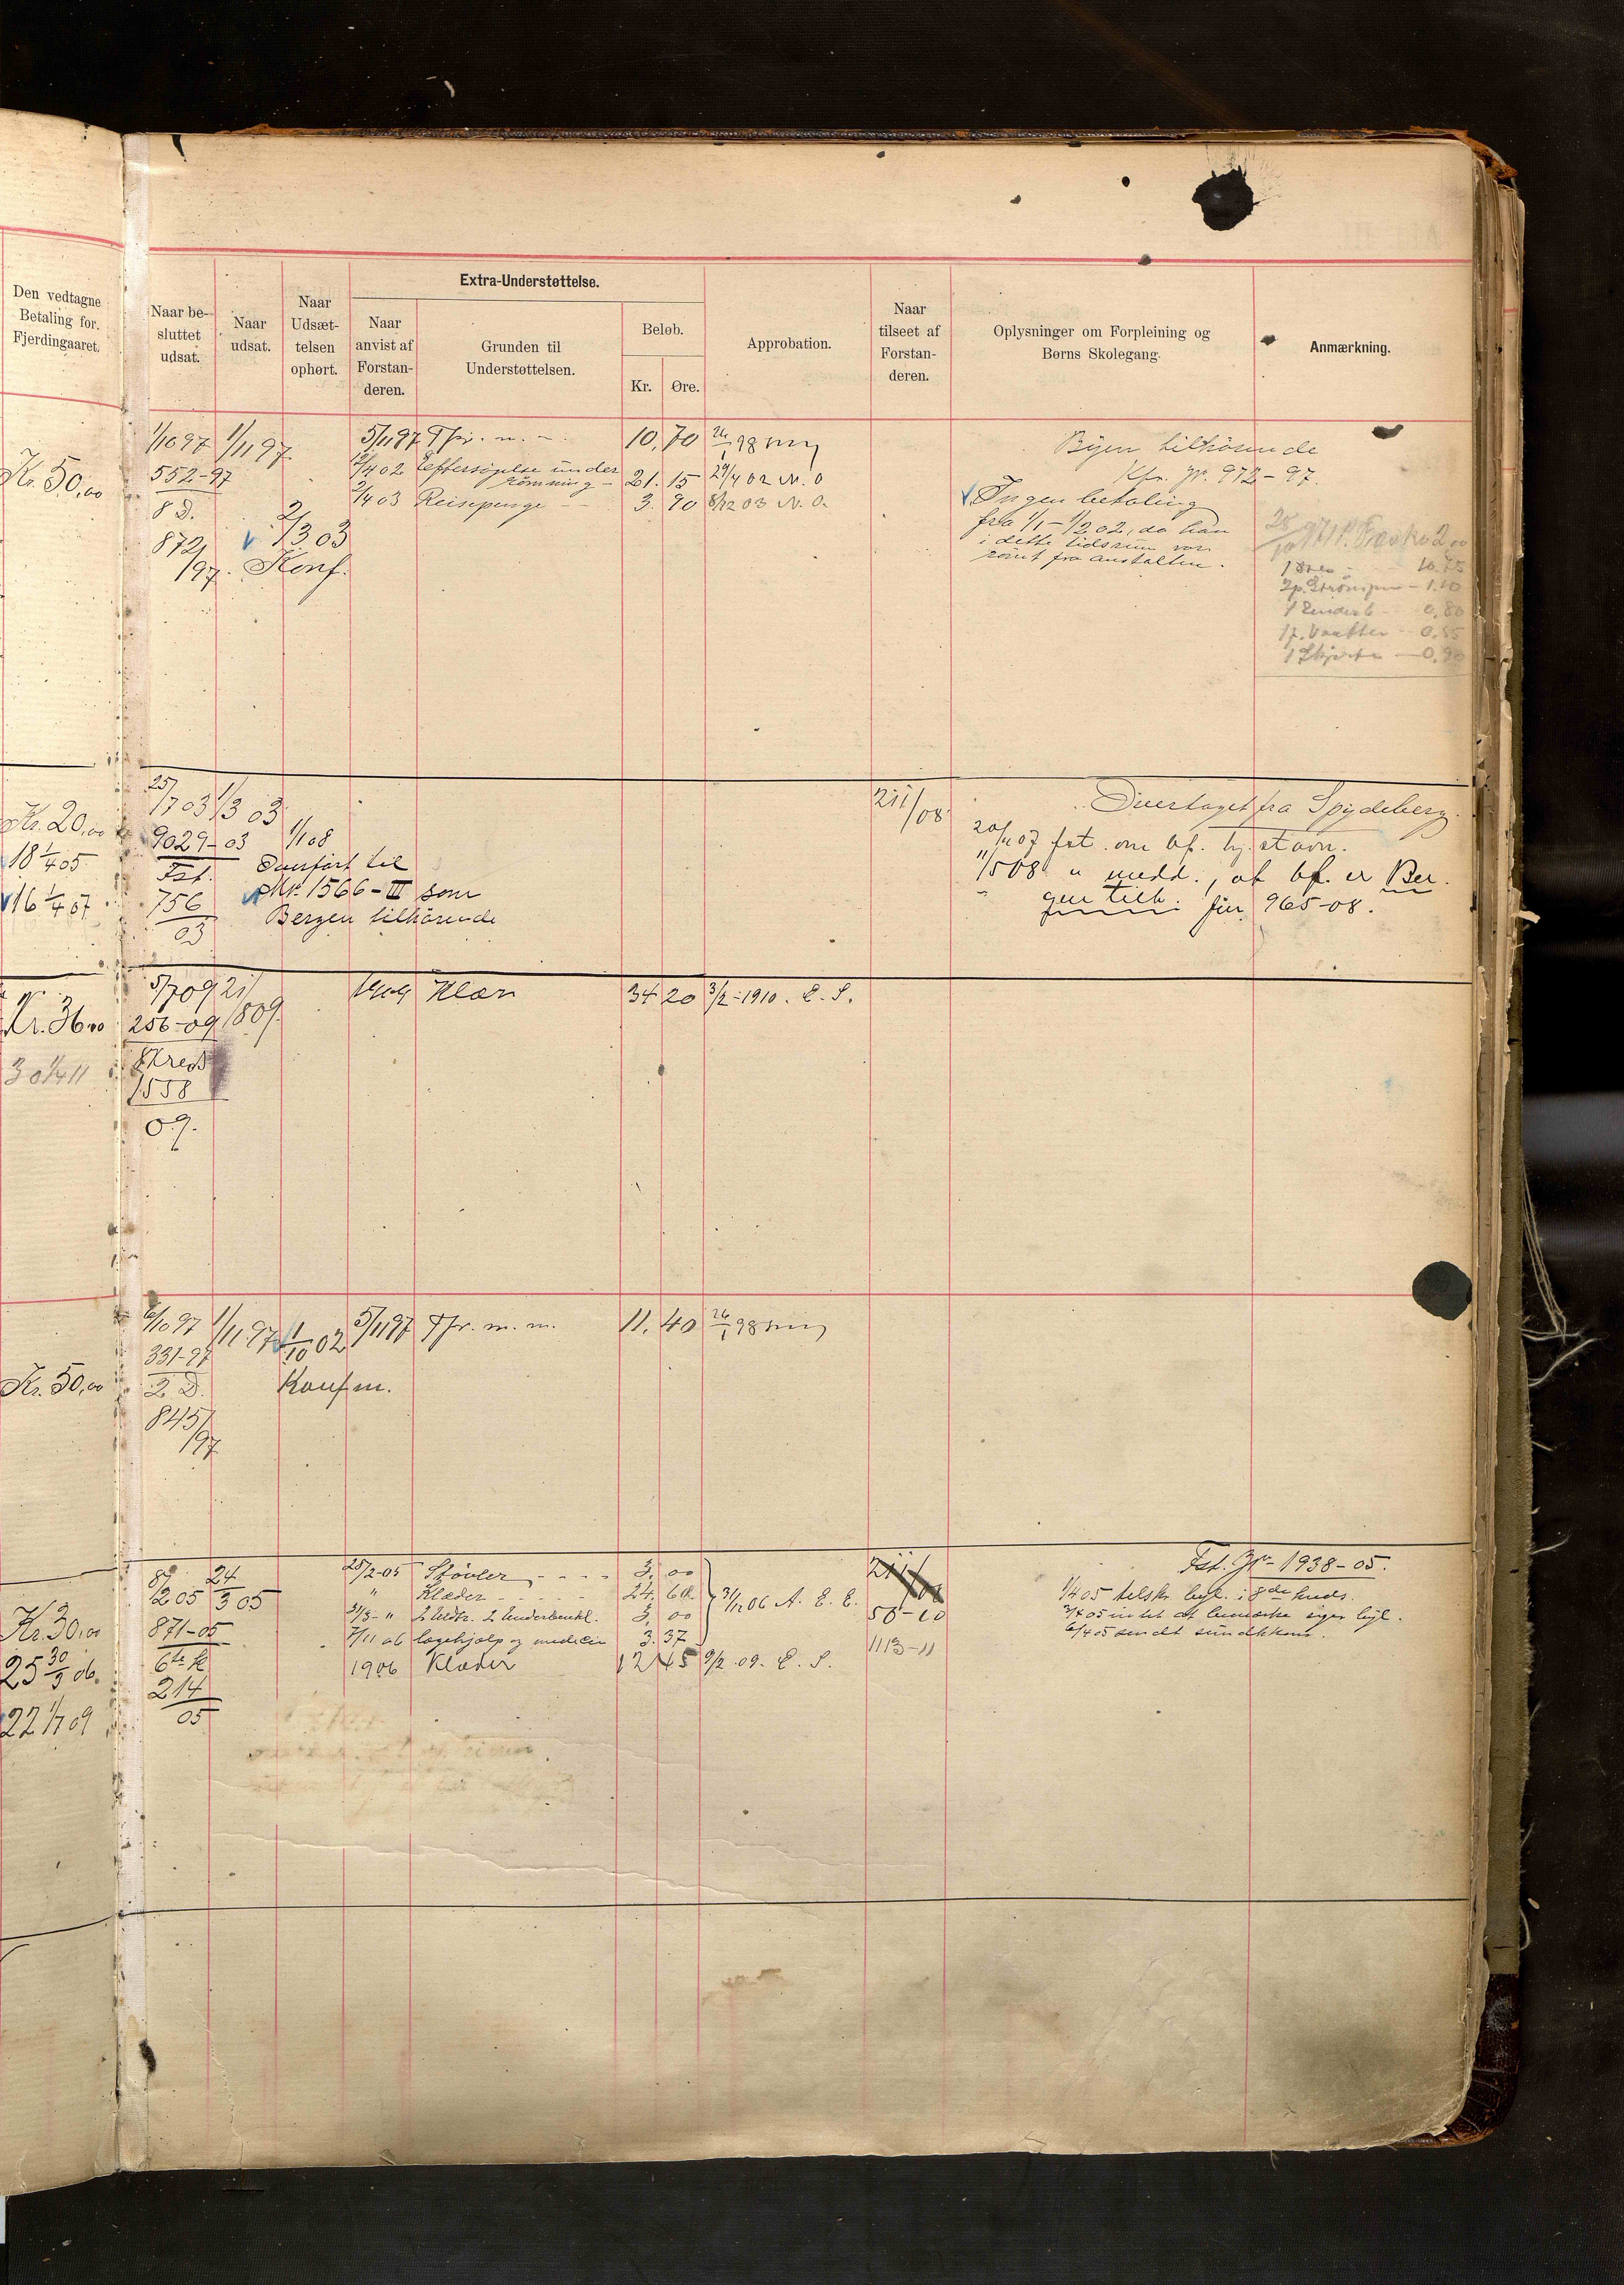 Den vedtagne
Betaling for.
Fjerdingaaret.
Naar be-
sluttet
udsat.
Naar
udsat.
Naar
Udsæt-
telsen
ophørt.
Extra-Understøttelse.
Naar
anvist af
Forstan-
deren.
Grunden til
Understøttelsen.
Beløb.
Kr.
Øre.
Approbation.
Naar
tilseet af
Forstan-
deren.
Oplysninger om Forpleining og
Børns Skolegang.
Anmærkning.
Kr. 50,00
1/10 97
552-97
8 D.
872/
/97.
1/11 97
2/3 03
Konf.
5/11 97 Tfr. m. 10,70 26/1 98
12/4 02 Eftersøgelse under
rømning - 21.15 29/4 02 N. O
2/4 03 Reisepenge - - 3.90 8/12 03 N. O.
Byen tilhørende
Kfr. Jr. 972-97.
Ingen betaling
fra 1/1 - 1/2 02, da han
i dette tidsrum var
rømt fra anstalten.
10.75
1.10
0,80
0,55
1 Skjorte — 0,90
Kr. 20,00
18 1/4 05
16 1/4 07
25/7 03
9029-03
Fst.
756
03
1/3 03
1/1 08
Overført til
Nr. 1566-III som
Bergen tilhørende
211/08
Overtaget fra Spydeberg.
20/11 07 fst. om bf. hj. stavn.
11/5 08 " medd., at bf. er Ber.
gen tilh. Jnr. 965-08.
Kr. 36,00
30 1/4 11
5/7 09
256-09
8 Kreds
1558
09.
21/8 09.
1909 Klær 34 20 3/2-1910. E. S.
Kr. 50,00
6/10 97
331-97
2 D.
845/
/97
1/11 97
1/10 02
Konfm.
5/11 97 Tfr. m. m. 11.40 26/1 98
Kr. 30,00
25 30/3 06.
22 1/7 09
8/2 05
871-05
6te K
214
05
24/3 05
25/2-05 Støvler - - - - 3.00
" Klæder - - - - 24.60
31/3- " 2 Uldtr. 2 Underbenkl. 3,00
7/11 06 lægehjælp og medicin 3.37
31/12 06 A. E. E.
1906 Klæder 12 45 9/2 09. E. S.
211/08
56-10
1113-11
Fst. Jr- 1938-05.
1/4 05 tilskr. tyl. i 8de kreds.